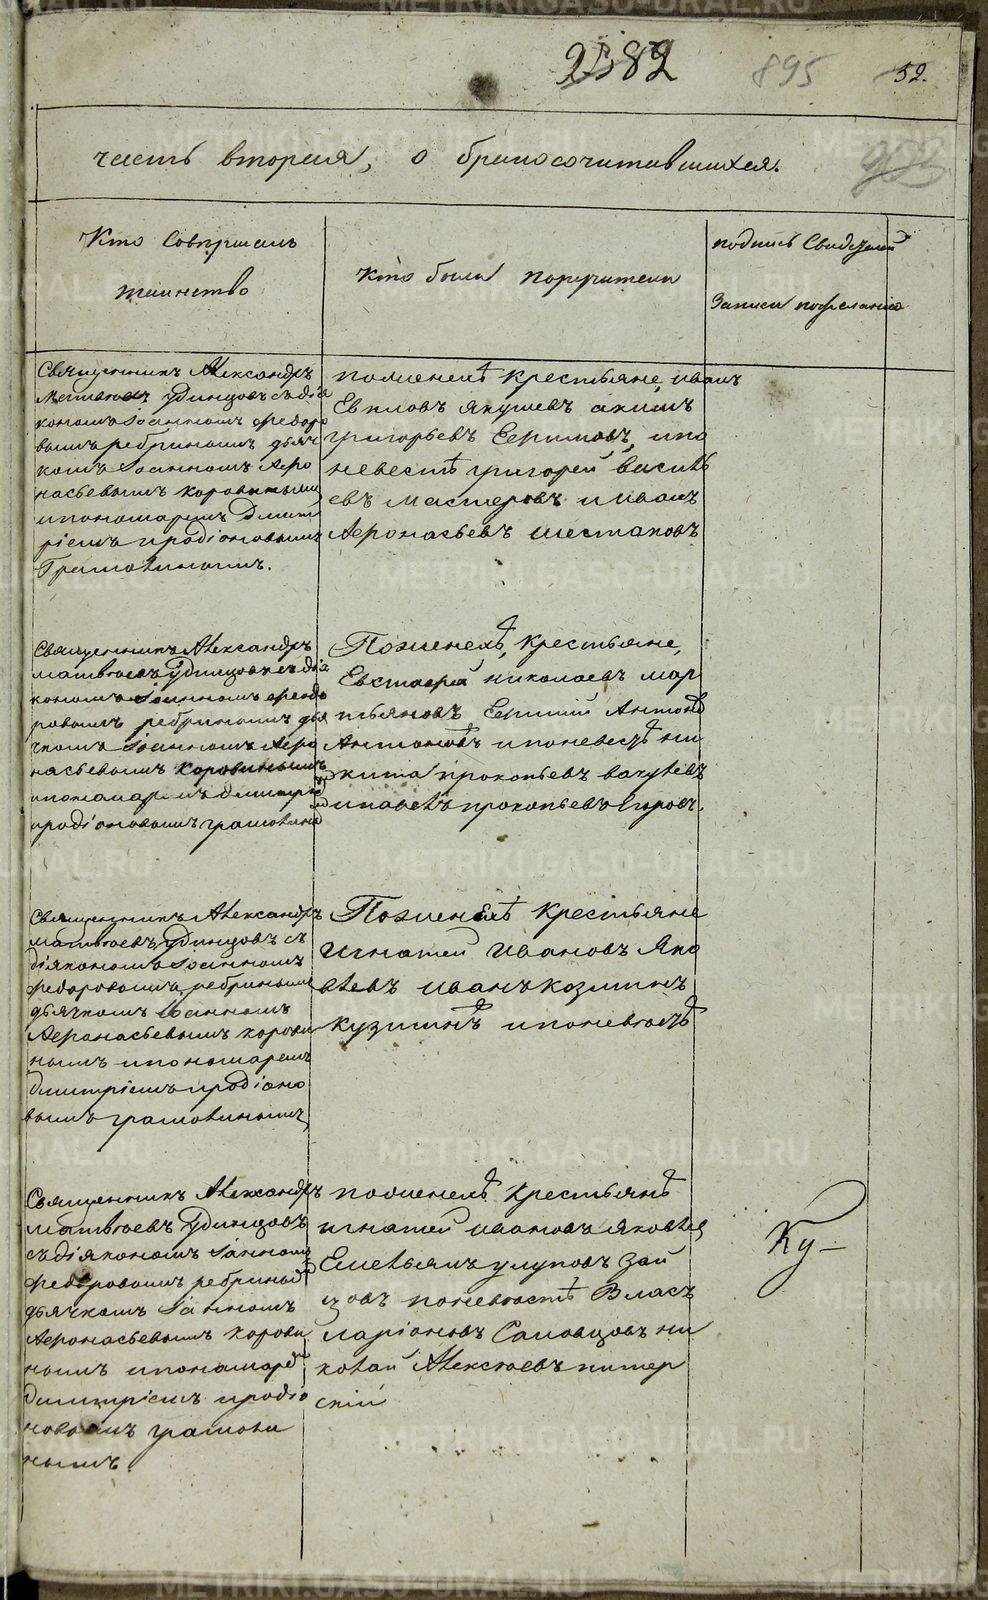 2382 895 52.
часть вторая, о бракосочитавшихся.
Кто Совершалъ
таинство
кто были поручители
подпись Свидетелей
Записи по желанию
Священникъ Александръ
Матвеевъ Удинцовъ съ діа
кономъ Іоанномъ Федоро
вымъ ребринымъ дьяч
комъ Іоанномъ Афо
насьевымъ коровиным
и пономаремъ Дмит
ріемъ продіоновымъ
Грамолинымъ.
поженихѣ крестьяне, иванъ
Евпловъ якушевъ акимъ
григорьевъ Ефимовъ, ипо
невестѣ григорей василь
евъ мастеровъ и иванъ
Афонасьевъ шестаковъ
Священникъ Александръ
матвѣевъ Удинцовъ съ діа
кономъ Іоанномъ Федо
ровымъ ребринымъ дья
чкомъ Іоанномъ Афо
насьевымъ коровинымъ
ипономаремъ дмитріе
продіоновымъ грамолины
Поженихѣ, крестьяне,
Евстафей николаевъ мар
тьяновъ, Ефимъ Антоно
Антоновъ ипоневестѣ ни
кита прокопьевъ
ипавелъ прокопьевъ
Священникъ Александръ
матвѣевъ Удинцовъ съ
діякономъ Іоанномъ
федоровымъ ребринымъ
дьячкомъ Іоанномъ
Афонасьевымъ корови
нымъ ипономаремъ
дмитріемъ продіоно
вымъ грамолинымъ
Поженихѣ крестьяне
игнатей ивановъ яко
влевъ иванъ козминъ
кузминъ ипоневѣстѣ
Священникъ Александръ
матвѣевъ Удинцовъ
съ діякономъ Іанномъ
федоровымъ ребрины
дьячкомъ Іанномъ
Афонасьевымъ корови
нымъ ипономаре
дмитріемъ продіо
новымъ грамоли
нымъ.
поженихѣ крестьянѣ
игнатей ивановъ яковлев
Емельянъ улуповъ зай
цовъ поневѣстѣ Власъ
ларіоновъ Самовцовъ ни
колай Алексѣевъ питер
скій
Ку-